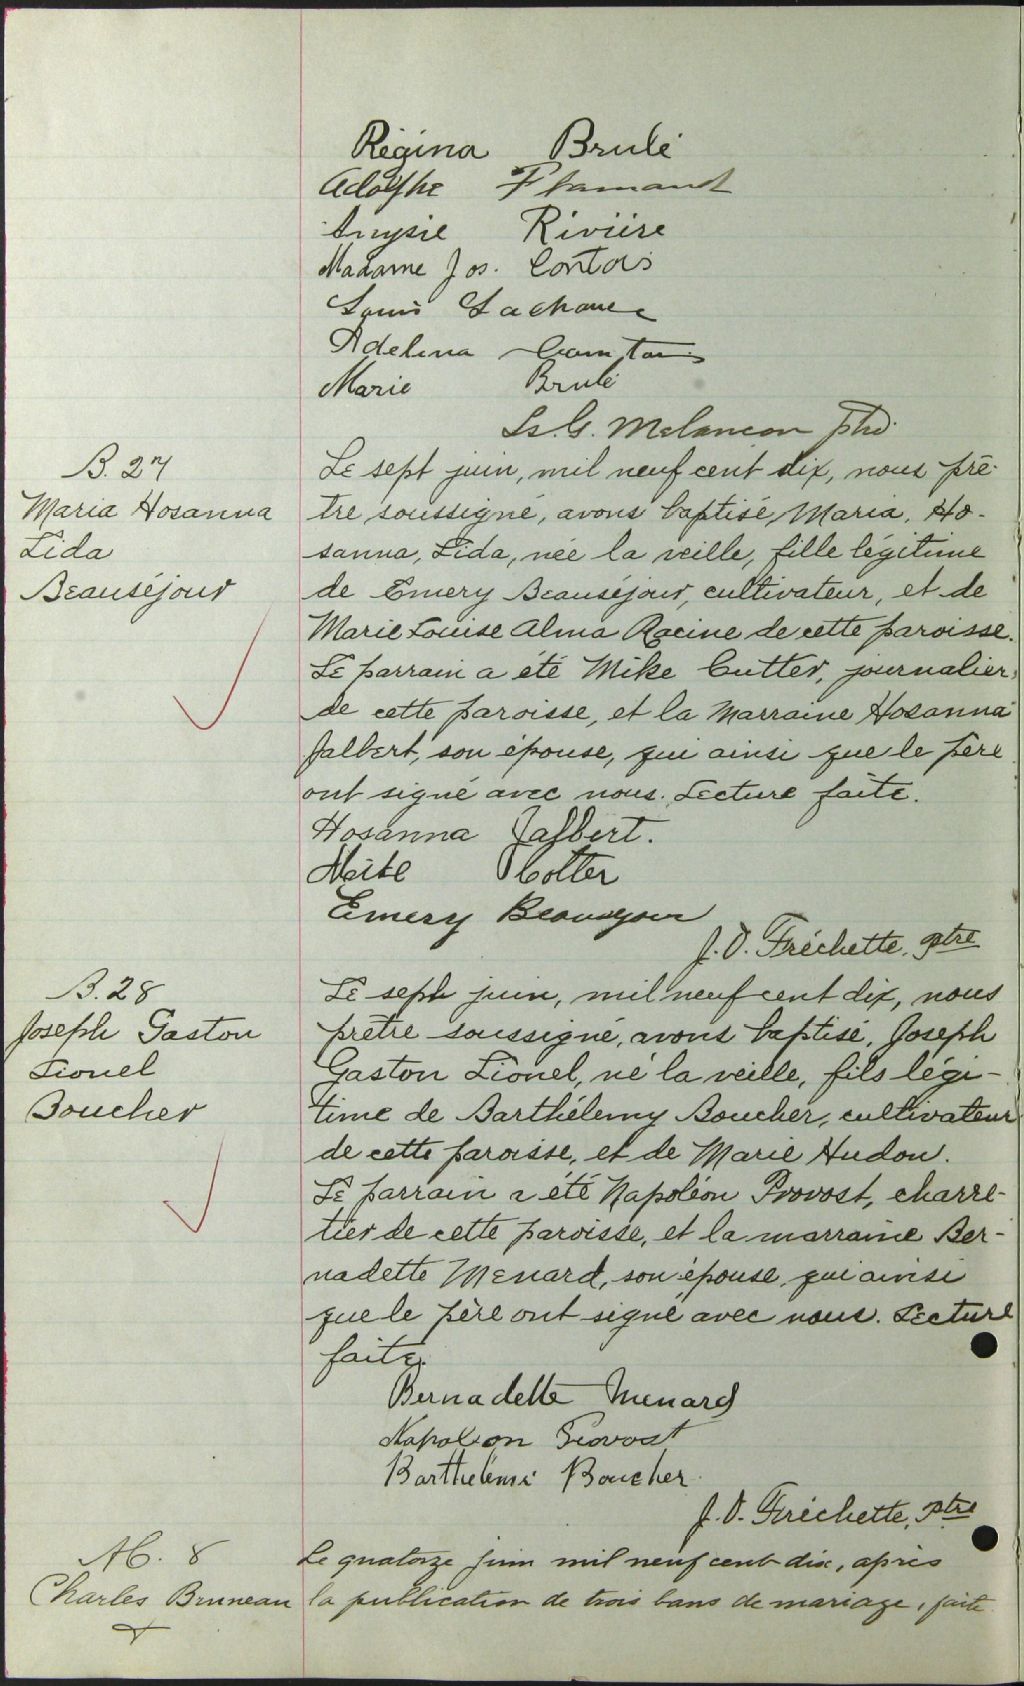 Régina Brulé
Adolphe Flamand
Anysie Rivière
Madame Jos. Contois
Louis Lachance
Adelina Comtois
Marie Brulé
Ls. G. Melançon ptre
B. 27
Maria Hosanna
Lida
Beauséjour
Le sept juin, mil neuf cent dix, nous prê-
tre soussigné, avons baptisé, Maria, Ho-
sanna, Lida, née la veille, fille légitime
de Emery Beauséjour, cultivateur, et de
Marie Louise Alma Racine de cette paroisse.
Le parrain a été Mike Cutter, journalier,
de cette paroisse, et la marraine Hosanna
Jalbert, son épouse, qui ainsi que le père
ont signé avec nous. Lecture faite.
Hosanna Jalbert.
Cotter
Emery Beausejour
J. O. Fréchette, ptre
B. 28
Joseph Gaston
Lionel
Boucher
Le sept juin, mil neuf cent dix, nous
prêtre soussigné, avons baptisé, Joseph
Gaston Lionel, né la veille, fils légi-
time de Barthélemy Boucher, cultivateur
de cette paroisse, et de Marie Hudon.
Le parrain a été Napoléon Provost, charre-
tier de cette paroisse, et la marraine Ber-
nadette Menard, son épouse, qui ainsi
que le père ont signé avec nous. Lecture
faite.
Bernadette Menard
Napoleon Provost
Barthélemi Boucher
J. O. Fréchette, Ptre
M. 8
Charles Bruneau
&
Le quatorze juin mil neuf cent dix, après
la publication de trois bans de mariage, faite